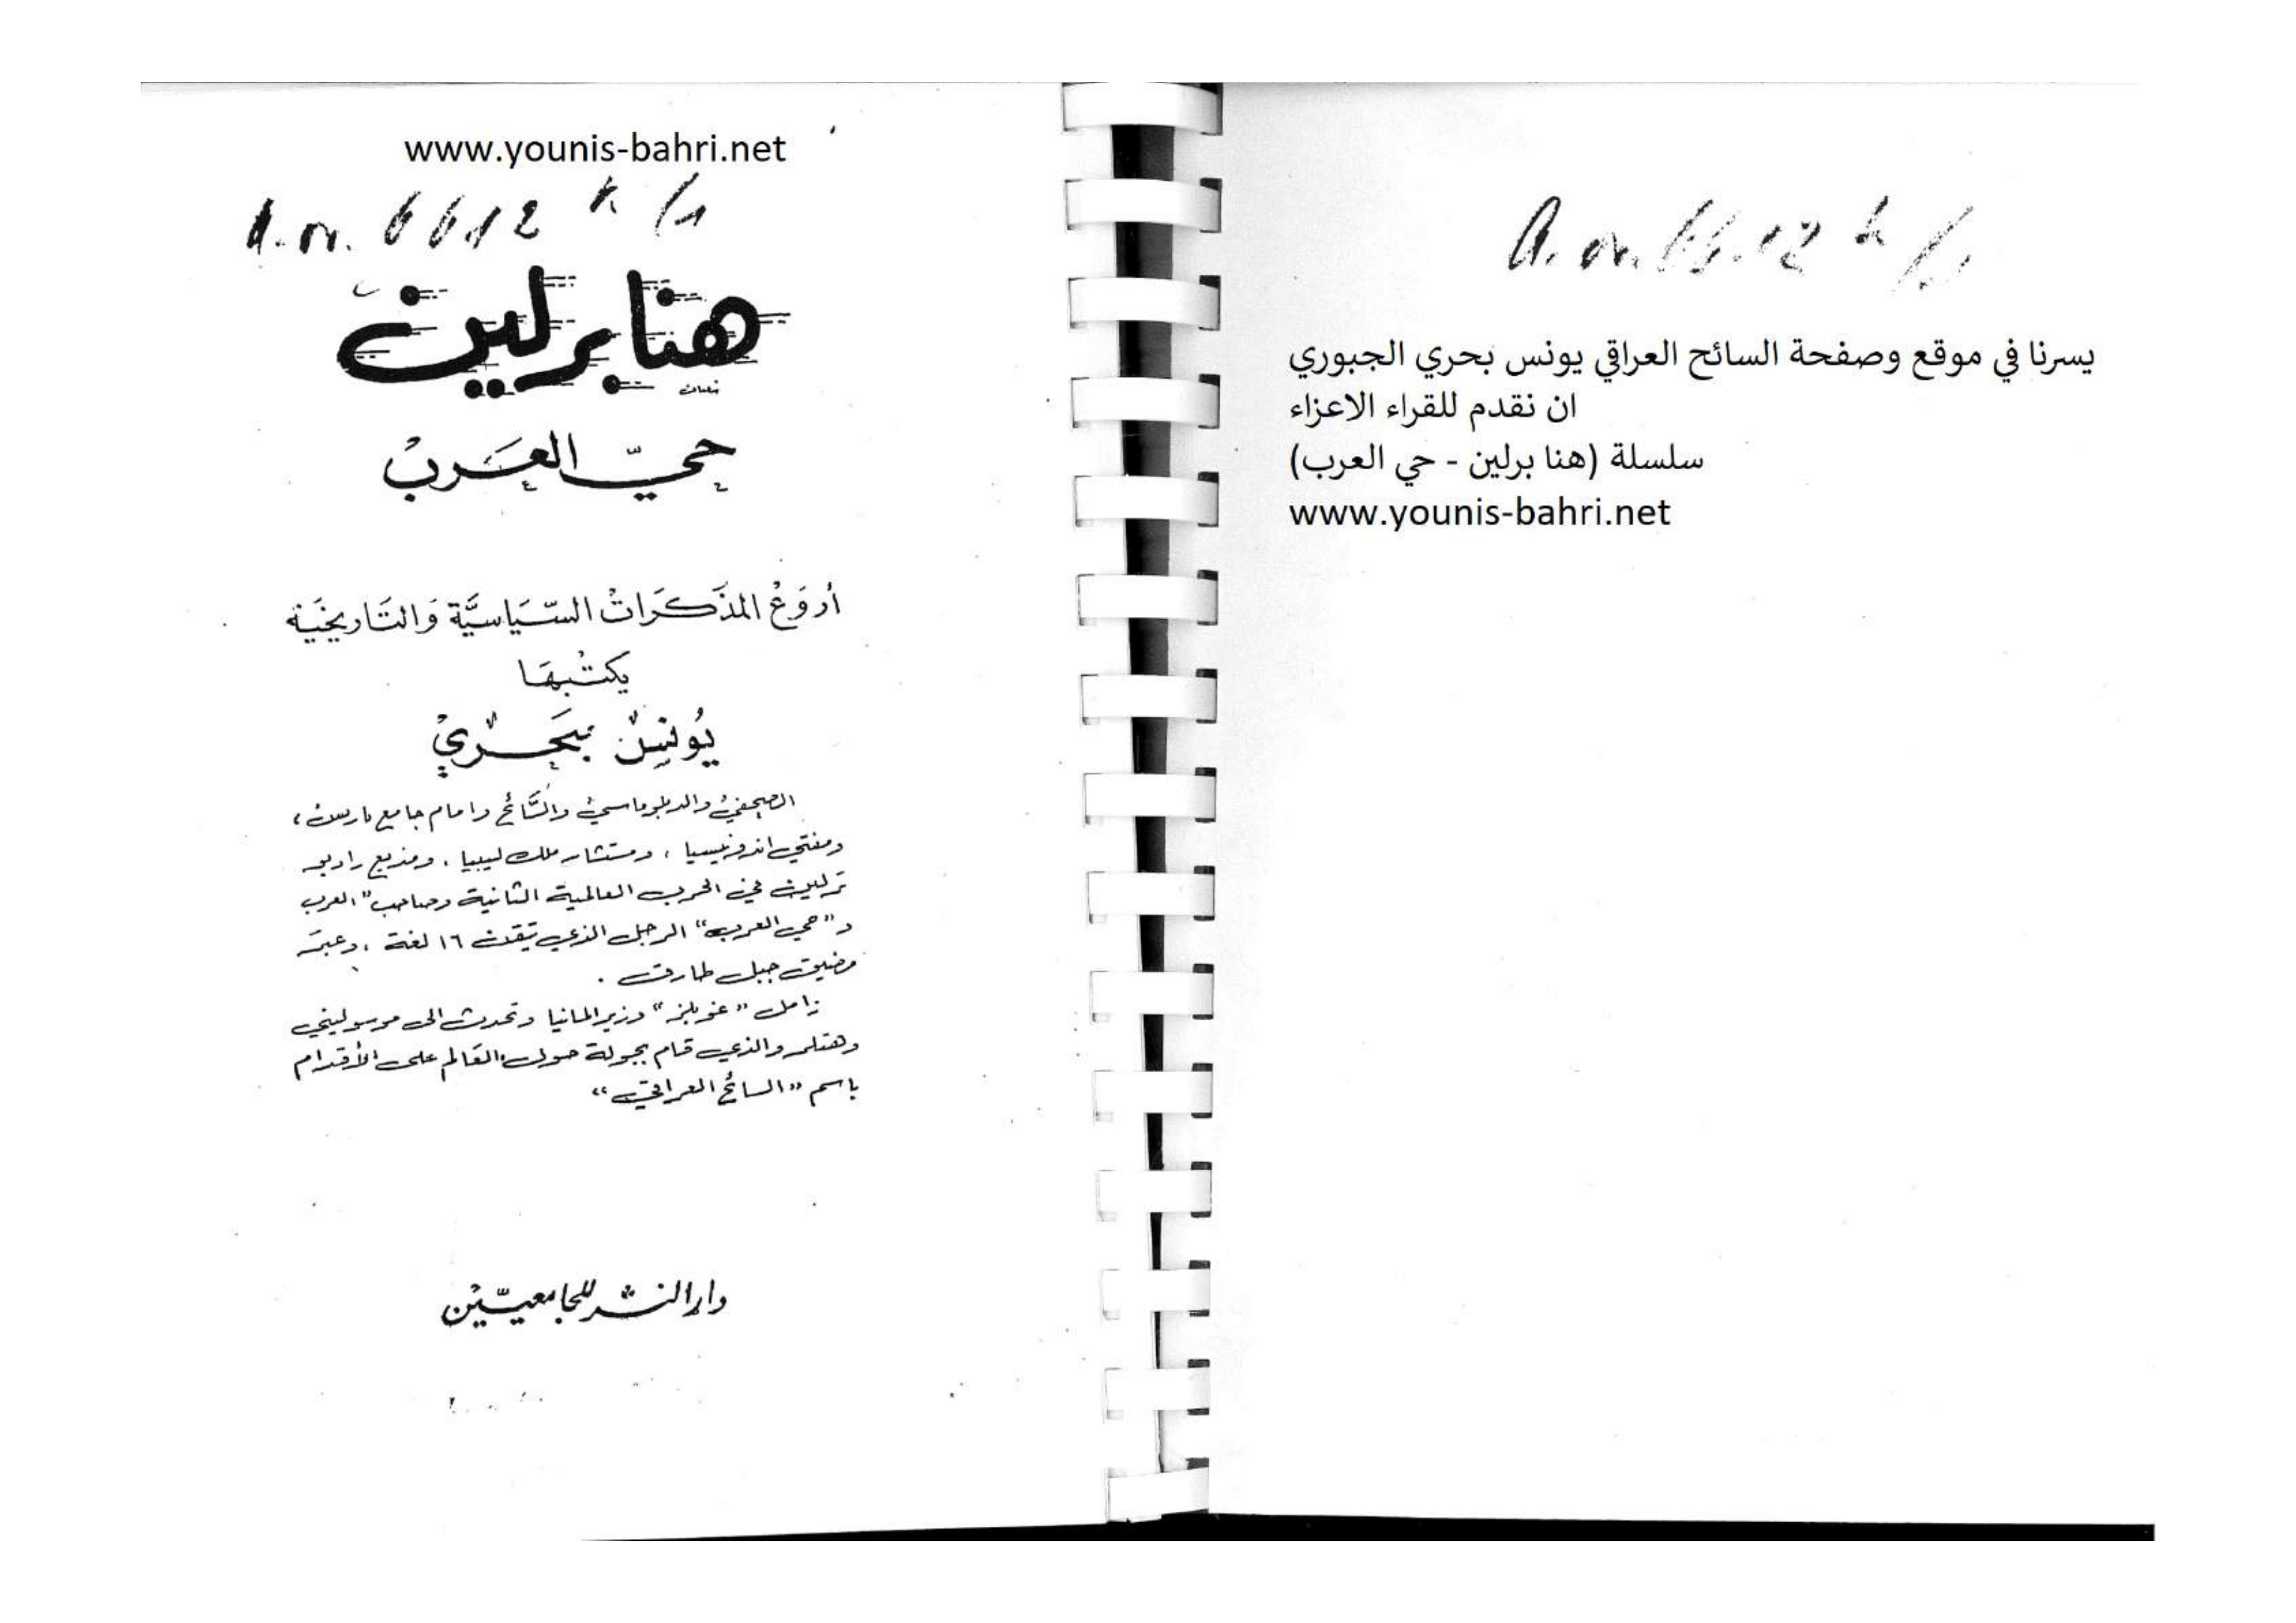 www.younis-bahri.net
هنا برلين
حيّ العَرَبْ
أروَعْ المذَكرَاتْ السّيَاسيَّة وَالتَاريخيَة
يكتْبهَا
يُونسْ بحَرْيْ
الصحفيْ والدبلوماسيْ والسَّائحْ وامام جامع باريس،
ومفتي اندونيسيا ، ومستشار ملك ليبيا ، ومذيع راديو
برلين في الحرب العالمية الثانية وصاحب "العرب
و"حي العرب" الرجل الذي يتقن ١٦ لغة ، وعبَر
مضيق جبل طارق .
زامل "غوبلز" وزير المانيا وتحدث الى موسوليني
وهتلر والذي قام بجولة حول العَالم على الأقدام
باسم "السائح العراقي"
دار النشر للجامعيّين
يسرنا في موقع وصفحة السائح العراقي يونس بحري الجبوري
ان نقدم للقراء الاعزاء
سلسلة (هنا برلين - حي العرب)
www.younis-bahri.net